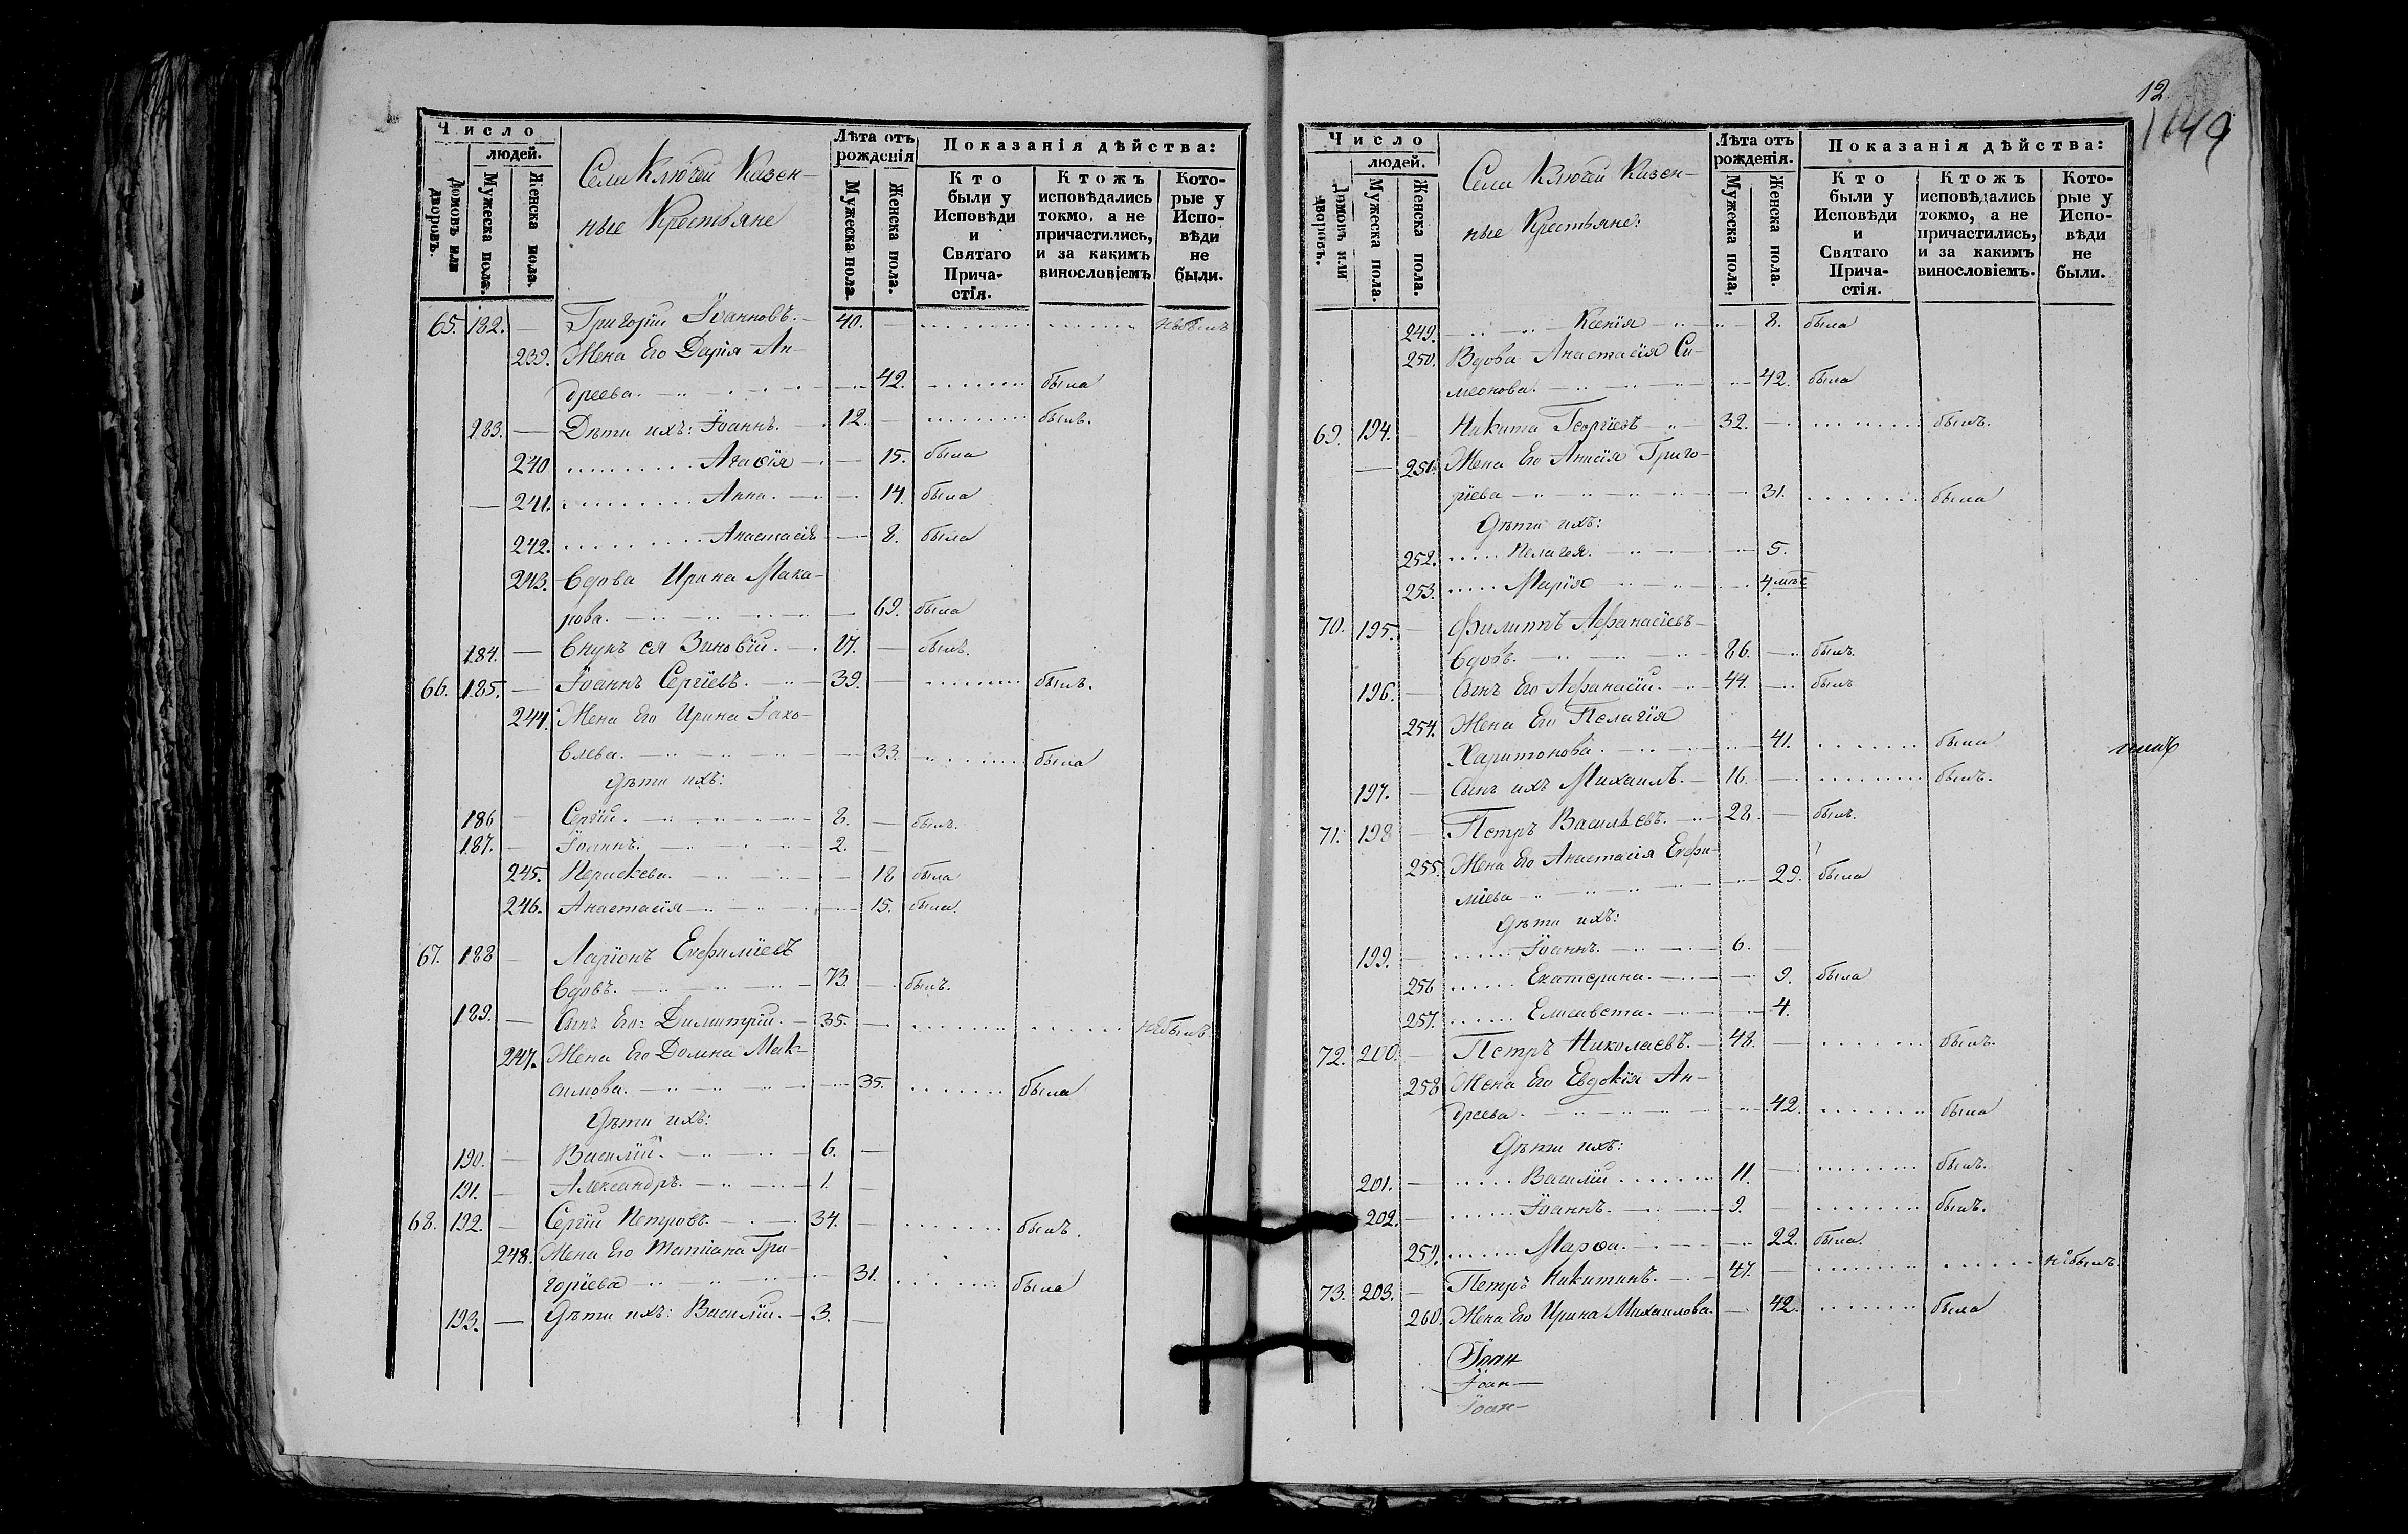 Число
людей.
Домовъ или дворовъ.
Мужеска пола.
Женска пола.
Села Ключей Казен-
ные Крестьяне
Лѣта отъ рожденія
Мужеска пола.
Женска пола.
Показанія дѣйства:
Кто были у Исповѣди и Святаго Причастія.
Ктожъ исповѣдались токмо, а не причастились, и за какимъ винословіемъ
Которые у Исповѣди не были.
65. 182. — Григорій Іоанновъ. — 40. — небылъ
239. Жена Его Дарія Ан-
дреева. — 42. была
183. — Дѣти ихъ: Іоаннъ. 12. — былъ.
240 Агаѳія — 15. была
241. Анна. — 14. была
242. Анастасія — 8. была
243. Вдова Ирина Мака-
рова. — 69. была
184. — Внукъ ея Зиновій. 17. — былъ.
66. 185. — Іоаннъ Сергіевъ. — 39. — былъ.
244. Жена Его Ирина Іако-
влева. — 33. была
Дѣти ихъ:
186 — Сергій. — 8. — былъ.
187. — Іоаннъ. — 2. —
245. Параскева. — 18 была
246. Анастасія — 15. была.
67. 188 — Ларіонъ Евфиміевъ
вдовъ. — 73. — былъ.
189. — Сынъ Его: Димитрій. — 35. — небылъ
247. Жена Его Домна Мак-
симова. — 35. была
Дѣти ихъ:
190. — Василій. — 6. —
191. — Александръ. — 1. —
68. 192. — Сергій Петровъ. — 34. — былъ.
248. Жена Его Татіана Гри-
горіева — 31. была
193. — Дѣти ихъ: Василій. — 3. —
12.
Число
людей.
Домовъ или дворовъ.
Мужеска пола.
Женска пола.
Села Ключей Казен-
ные Крестьяне:
Лѣта отъ рожденія.
Мужеска пола,
Женска пола.
Показанія дѣйства:
Кто были у Исповѣди и Святаго Причастія.
Ктожъ исповѣдались токмо, а не причастились, и за какимъ винословіемъ.
Которые у Исповѣди не были.
249. Ксенія — 8. была
250. Вдова Анастасія Си-
меонова. — 42. была
69. 194. — Никита Георгіевъ — 32. — былъ.
— 251. Жена Его Анисія Григо-
ріева — 31. была
Дѣти ихъ:
252. Пелагея. — 5.
253. Марія — 4 мѣс
70. 195. — Филиппъ Афанасіевъ
вдовъ. — 86. — былъ.
196. — Сынъ Его Афанасій. — 44. — былъ
254. Жена Его Пелагія
Харитонова. — 41. была
197. — Сынъ ихъ Михаилъ. — 16. — былъ.
71. 198 — Петръ Васильевъ. — 28. — былъ.
255. Жена Его Анастасія Евфи-
міева — 29. была
Дѣти ихъ:
199. — Іоаннъ. — 6. —
256 Екатерина. — 9. была
257. Елисавета. — 4.
72. 200. — Петръ Николаевъ. — 48. — былъ.
258 Жена Его Евдокія Ан-
дреева. — 42. была
Дѣти ихъ:
201. — Василій 11. — былъ.
202. — Іоаннъ. — 9. — былъ.
259. Марѳа. — 22. была.
73. 203. — Петръ Никитинъ. — 47. — небылъ
260. Жена Его Ирина Михаилова. — 42. была
Іоан
Іоан—
Іоан-